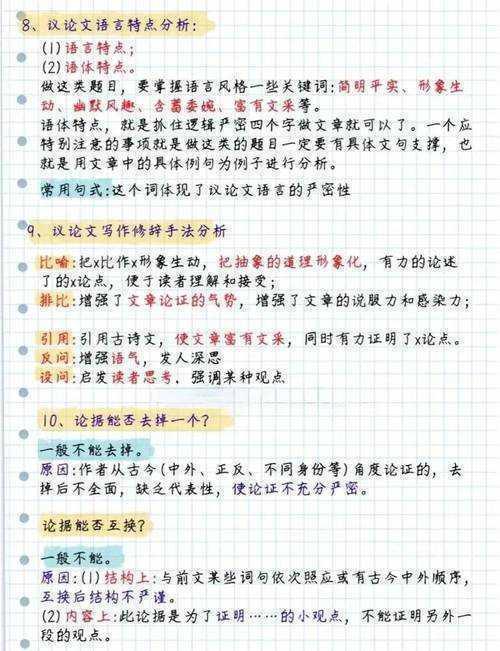 8、议论文语言特点分析:
(1)语言特点;
(2)语体特点。
做这类题目，要掌握语言风格一些关键词:简明平实、形象生
动、幽默风趣、含蓄委婉、富有文采等。
语体特点，就是抓住逻辑严密四个字做文章就可以了。一个应
特别注意的事项就是做这类的题目一定要有具体文句支撑，也
就是用文章中的具体例句为例子进行分析。
常用句式:这个词体现了议论文语言的严密性
9、议论文写作修辞手法分析
比喻:把x比作x形象生动，把抽象的道理形象化，有力的论述
了的x论点，便于读者理解和接受;
排比:增强了文章论证的气势，增强了文章的说服力和感染力;
引用:引用古诗文，使文章富有文采，同时有力证明了x论点。
反问:增强语气，发人深思
设问:启发读者思考．强调某种观点
10、论据能否去掉一个?
一般不能去掉。
原因:作者从古今(中外、正反、不同身份等)角度论证的，去
掉后不全面，缺乏代表性，使论证不充分严密。
论据能否互换?
一般不能。
原因:(1)结构上:与前文某些词句依次照应或有古今中外顺序，
互换后结构不严谨。
(2)内容上:此论据是为了证明……的小观点，不能证明另外一
段的观点。